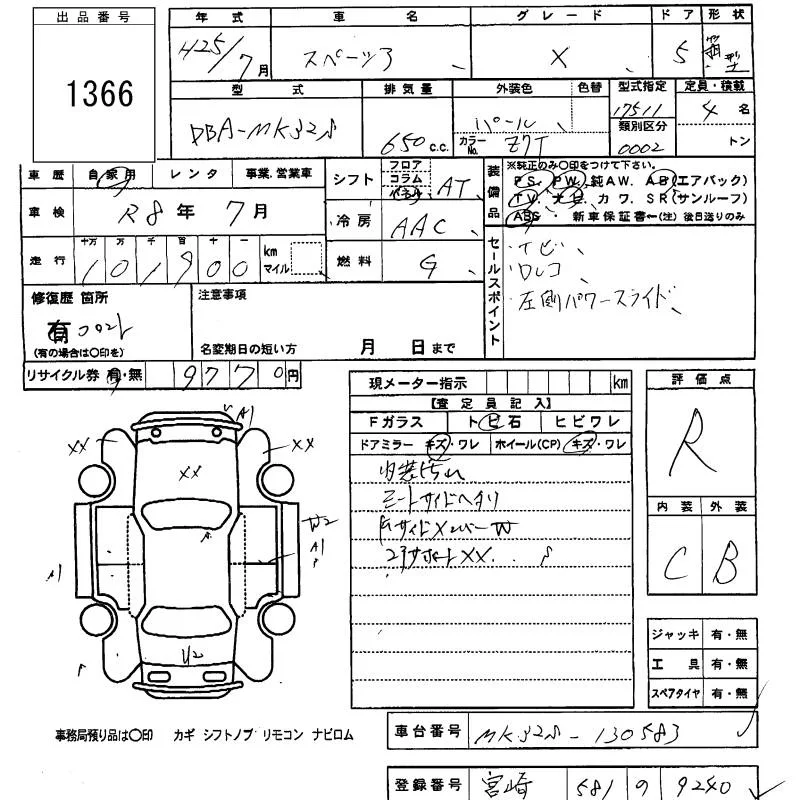 出品番号 1366
年式 車名 グレード ドア 形状
H25/7月 スペーシア X 5 箱型
型式 排気量 外装色 色替 型式指定 定員・積載
DBA-MK32S 650c.c. パール 17511 4名
カラーNo. Z7T 類別区分 0002 トン
車歴 自家用 レンタ 事業.営業車
シフト フロア コラム AT
装備品 ※純正のみ〇印をつけて下さい。
PS. PW. 純AW. AB(エアバック)
TV. ナビ. カワ. SR(サンルーフ)
ABS・新車保証書←(注)後日送りのみ
車検 R8年 7月
冷房 AAC
走行 十万 万 千 百 十 一
101900 km マイル
燃料 G
セールスポイント
ナビ、
ワレコ
左側パワースライド、
修復歴 箇所
有
(有の場合は〇印を)
注意事項
名変期日の短い方 月 日まで
リサイクル券 有・無 9770円
現メーター指示 km
【査定員記入】
Fガラス トビ石 ヒビワレ
ドアミラー キズ・ワレ ホイール(CP) キズ・ワレ
内装汚れ
シートサイドヘタリ
XX
評価点
R
内装 外装
C B
A1
XX XX
XX
W2
A1
A1
U2
ジャッキ 有・無
工具 有・無
スペアタイヤ 有・無
事務局預り品は〇印 カギ シフトノブ リモコン ナビロム
車台番号 MK32S-130583
登録番号 宮崎 581 の 9240